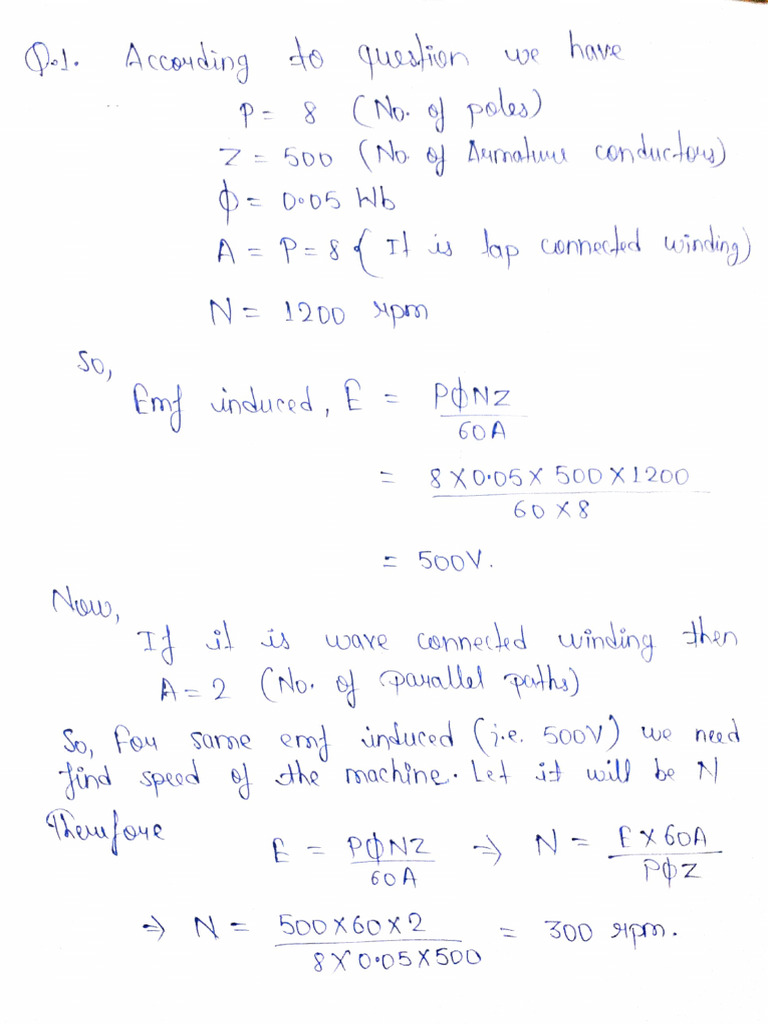 Q.1. According to question we have
P = 8 (No. of poles)
Z = 500 (No of Armature conductors)
ϕ = 0.05 Wb
A = P = 8 { It is lap connected winding)
N = 1200 rpm
So,
Emf induced, E = PϕNZ / 60A
= 8 X 0.05 X 500 X 1200 / 60 X 8
= 500V.
Now,
If it is wave connected winding then
A = 2 (No. of parallel paths)
So, For same emf induced (i.e. 500V) we need
find speed of the machine. Let it will be N
Therefore
E = PϕNZ / 60A ⇒ N = E X 60A / PϕZ
⇒ N = 500 X 60 X 2 / 8 X 0.05 X 500 = 300 rpm.